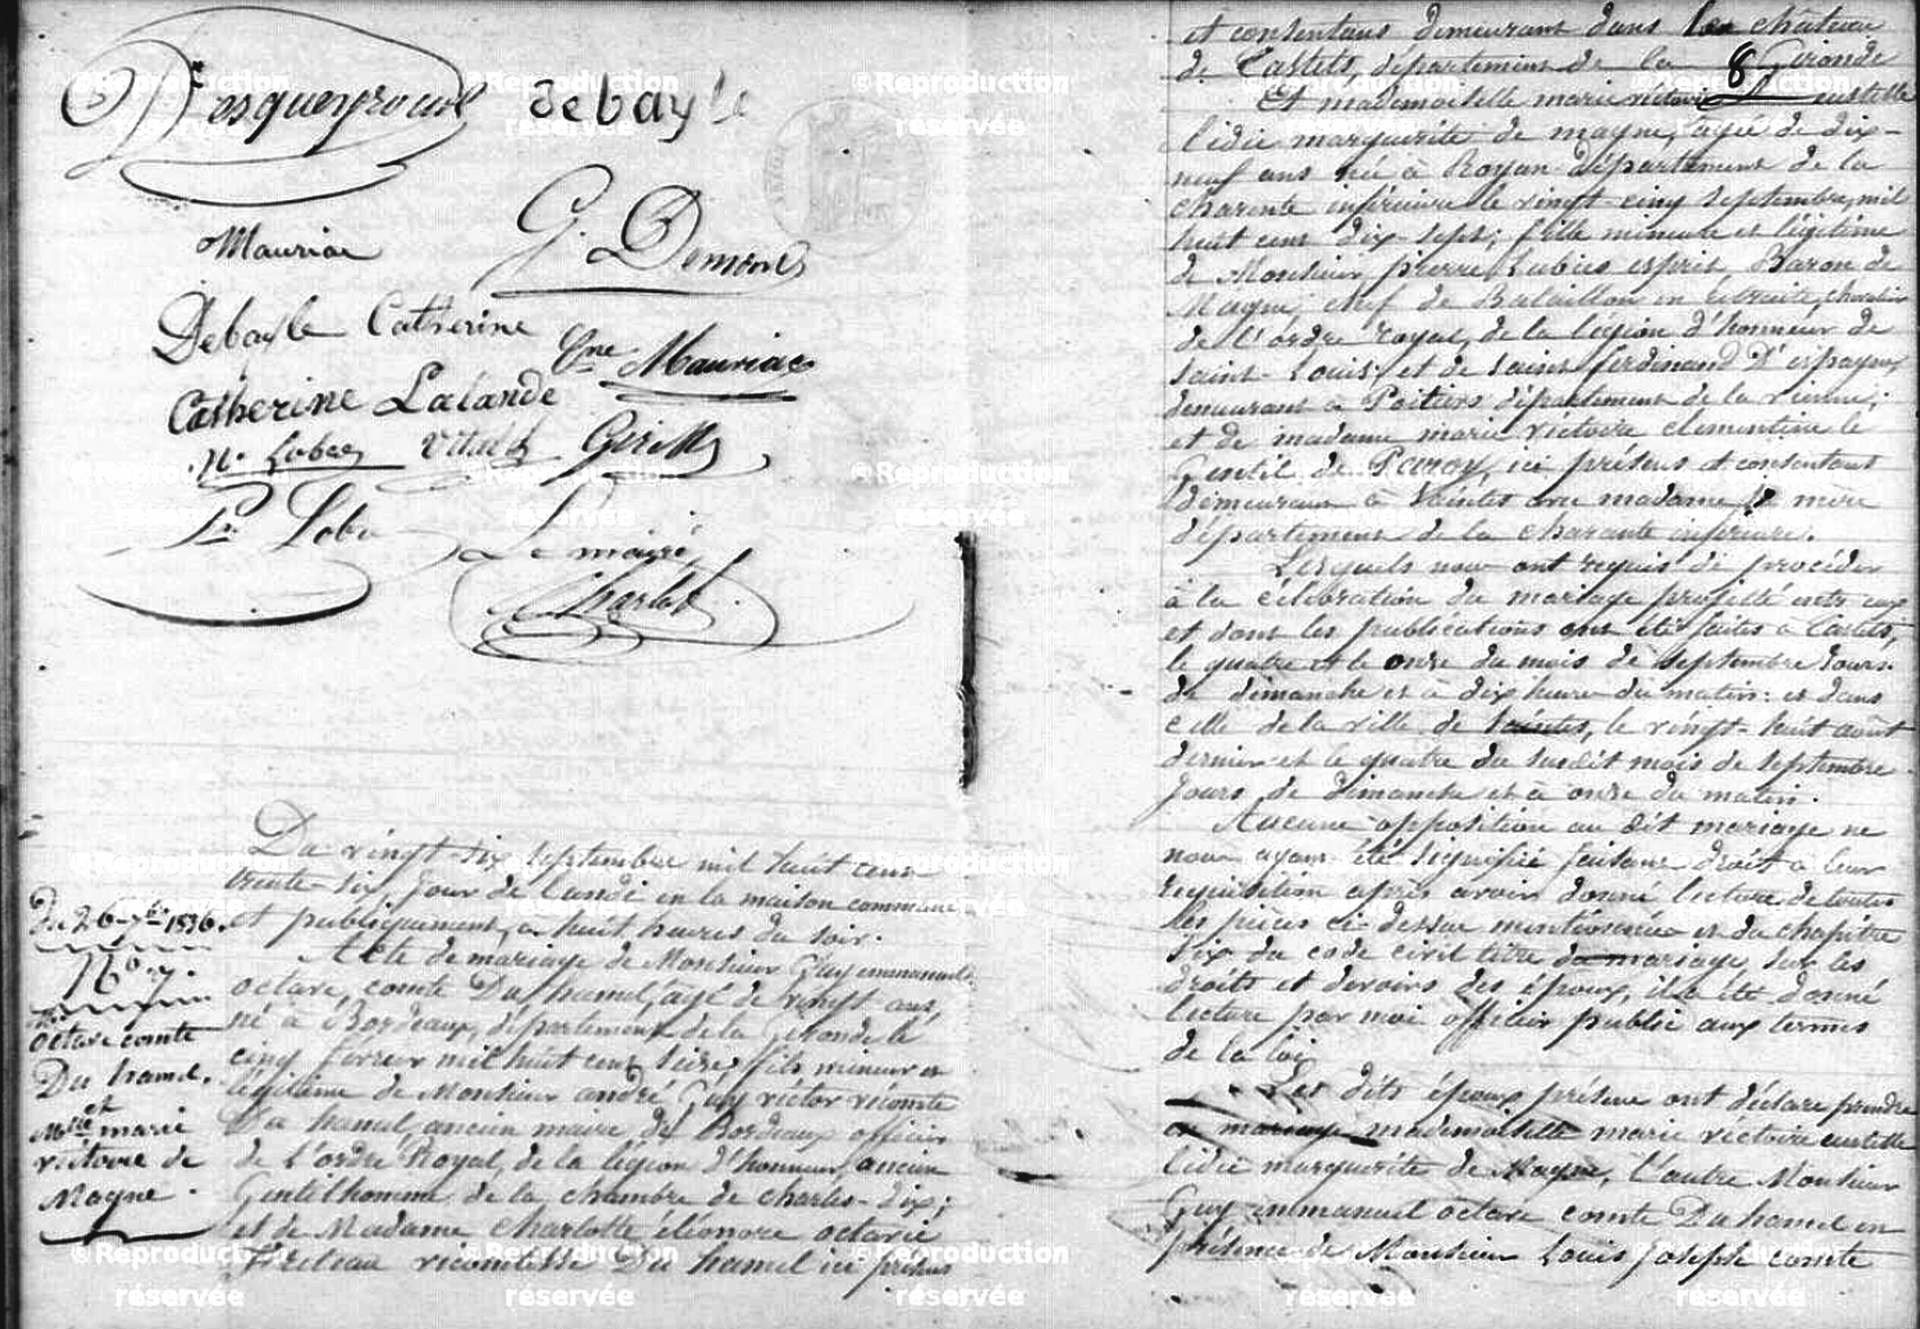 Desqueyroux debayle
Mauriac G. Demons
Debayle Catherine
Cne Mauriac
Catherine Lalande
Le maire
Charlot
Du vingt-six septembre mil huit cent
trente-six, jour de lundi en la maison commune
et publiquement, a huit heures du soir.
Du 26 7bre 1836.
No 7.
octave comte
Du hamel.
et
Mlle marie
victoire de
Mayne.
Acte de mariage de Monsieur Guy emmanuel
octave, comte Du hamel, agé de vingt ans,
né à Bordeaux, département de la Gironde le
cinq fevrier mil huit cent seize, fils mineur et
légitime de Monsieur andré Guy victor vicomte
Du hamel, ancien maire de Bordeaux officier
de l'ordre Royal, de la légion d'honneur, ancien
Gentilhomme de la chambre de charles-dix;
et de Madame charlotte éléonore octavie
Filleau vicomtesse Du hamel ici présens
8
et consentans demeurant dans le château
de Castets, département de la Gironde
Et mademoiselle marie victoire eustelle
lidie marguerite de mayne, agée de dix-
neuf ans née à Royan département de la
charente inférieure le vingt cinq septembre, mil
huit cent dix-sept; fille mineure et légitime
de Monsieur pierre esprit, Baron de
Mayne, chef de Bataillon en retraite, chevalier
de l'ordre royal, de la légion d'honneur de
saint-louis, et de saint ferdinand D'espagne
demeurant à Poitiers département de la vienne;
et de madame marie victoire clementine le
Gentil de Paroy, ici présens et consentant
demeurant à Saintes madame mère
département de la charante inferieure.
Lesquels nous ont requis de procéder
à la célébration du mariage projetté entr eux
et dont les publications ont été faites à Castets,
le quatre et le onze du mois de septembre jours
de dimanche et à dix heure du matin: et dans
celle de la ville de Saintes, le vingt-huit août
dernier et le quatre du susdit mois de septembre
jours de dimanche et à onze du matin.
Aucune opposition au dit mariage ne
nous ayant été signifiée faisant droit a leur
requisition après avoir donné lecture de toutes
les pièces ci-dessus mentionnées et du chapitre
six du code civil titre du mariage, sur les
droits et devoirs des époux, il a été donné
lecture par moi officier public aux termes
de la loi
Les dits époux présens ont déclaré prendre
en mariage, mademoiselle marie victoire eustelle
lidie marguerite de Mayne, l'autre Monsieur
Guy emmanuel octave comte Du hamel en
présence de Monsieur Louis Joseph comte
©Reproduction
réservée